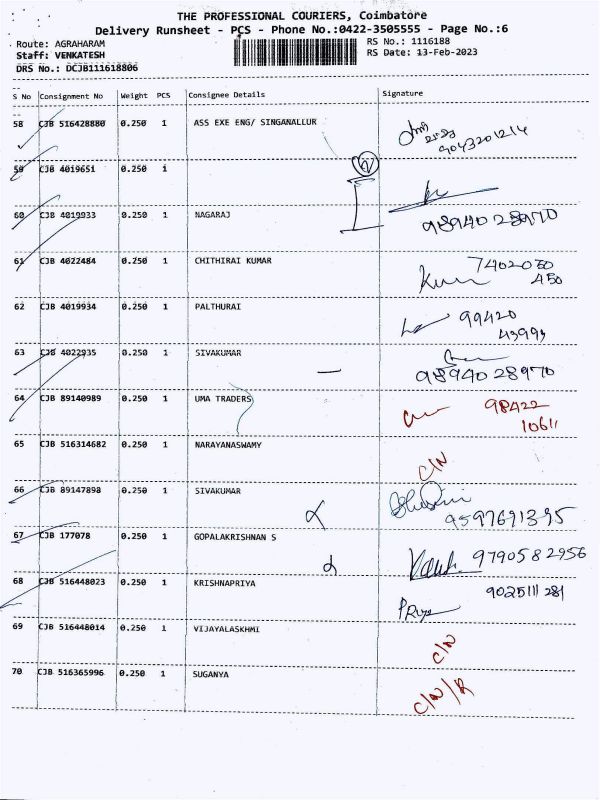 THE PROFESSIONAL COURIERS, Coimbatore
Delivery Runsheet - PCS - Phone No.:0422-3505555 - Page No.:6
Route: AGRAHARAM RS No.: 1116188
Staff: VENKATESH RS Date: 13-Feb-2023
DRS No.: DCJB111618806
S No Consignment No Weight PCS Consignee Details Signature
58 CJB 516428880 0.250 1 ASS EXE ENG/ SINGANALLUR
9043201214
59 CJB 4019651 0.250 1
60 CJB 4019933 0.250 1 NAGARAJ 98940 28970
61 CJB 4022484 0.250 1 CHITHIRAI KUMAR 7402050
450
62 CJB 4019934 0.250 1 PALTHURAI 99420
43993
63 CJB 4022935 0.250 1 SIVAKUMAR 98940 28970
64 CJB 89140989 0.250 1 UMA TRADERS 98422
10611
65 CJB 516314682 0.250 1 NARAYANASWAMY C/N
66 CJB 89147898 0.250 1 SIVAKUMAR
9597691395
67 CJB 177078 0.250 1 GOPALAKRISHNAN S 9790582956
68 CJB 516448023 0.250 1 KRISHNAPRIYA 9025111281
Priya
69 CJB 516448014 0.250 1 VIJAYALASKHMI C/N
70 CJB 516365996 0.250 1 SUGANYA C/N/R